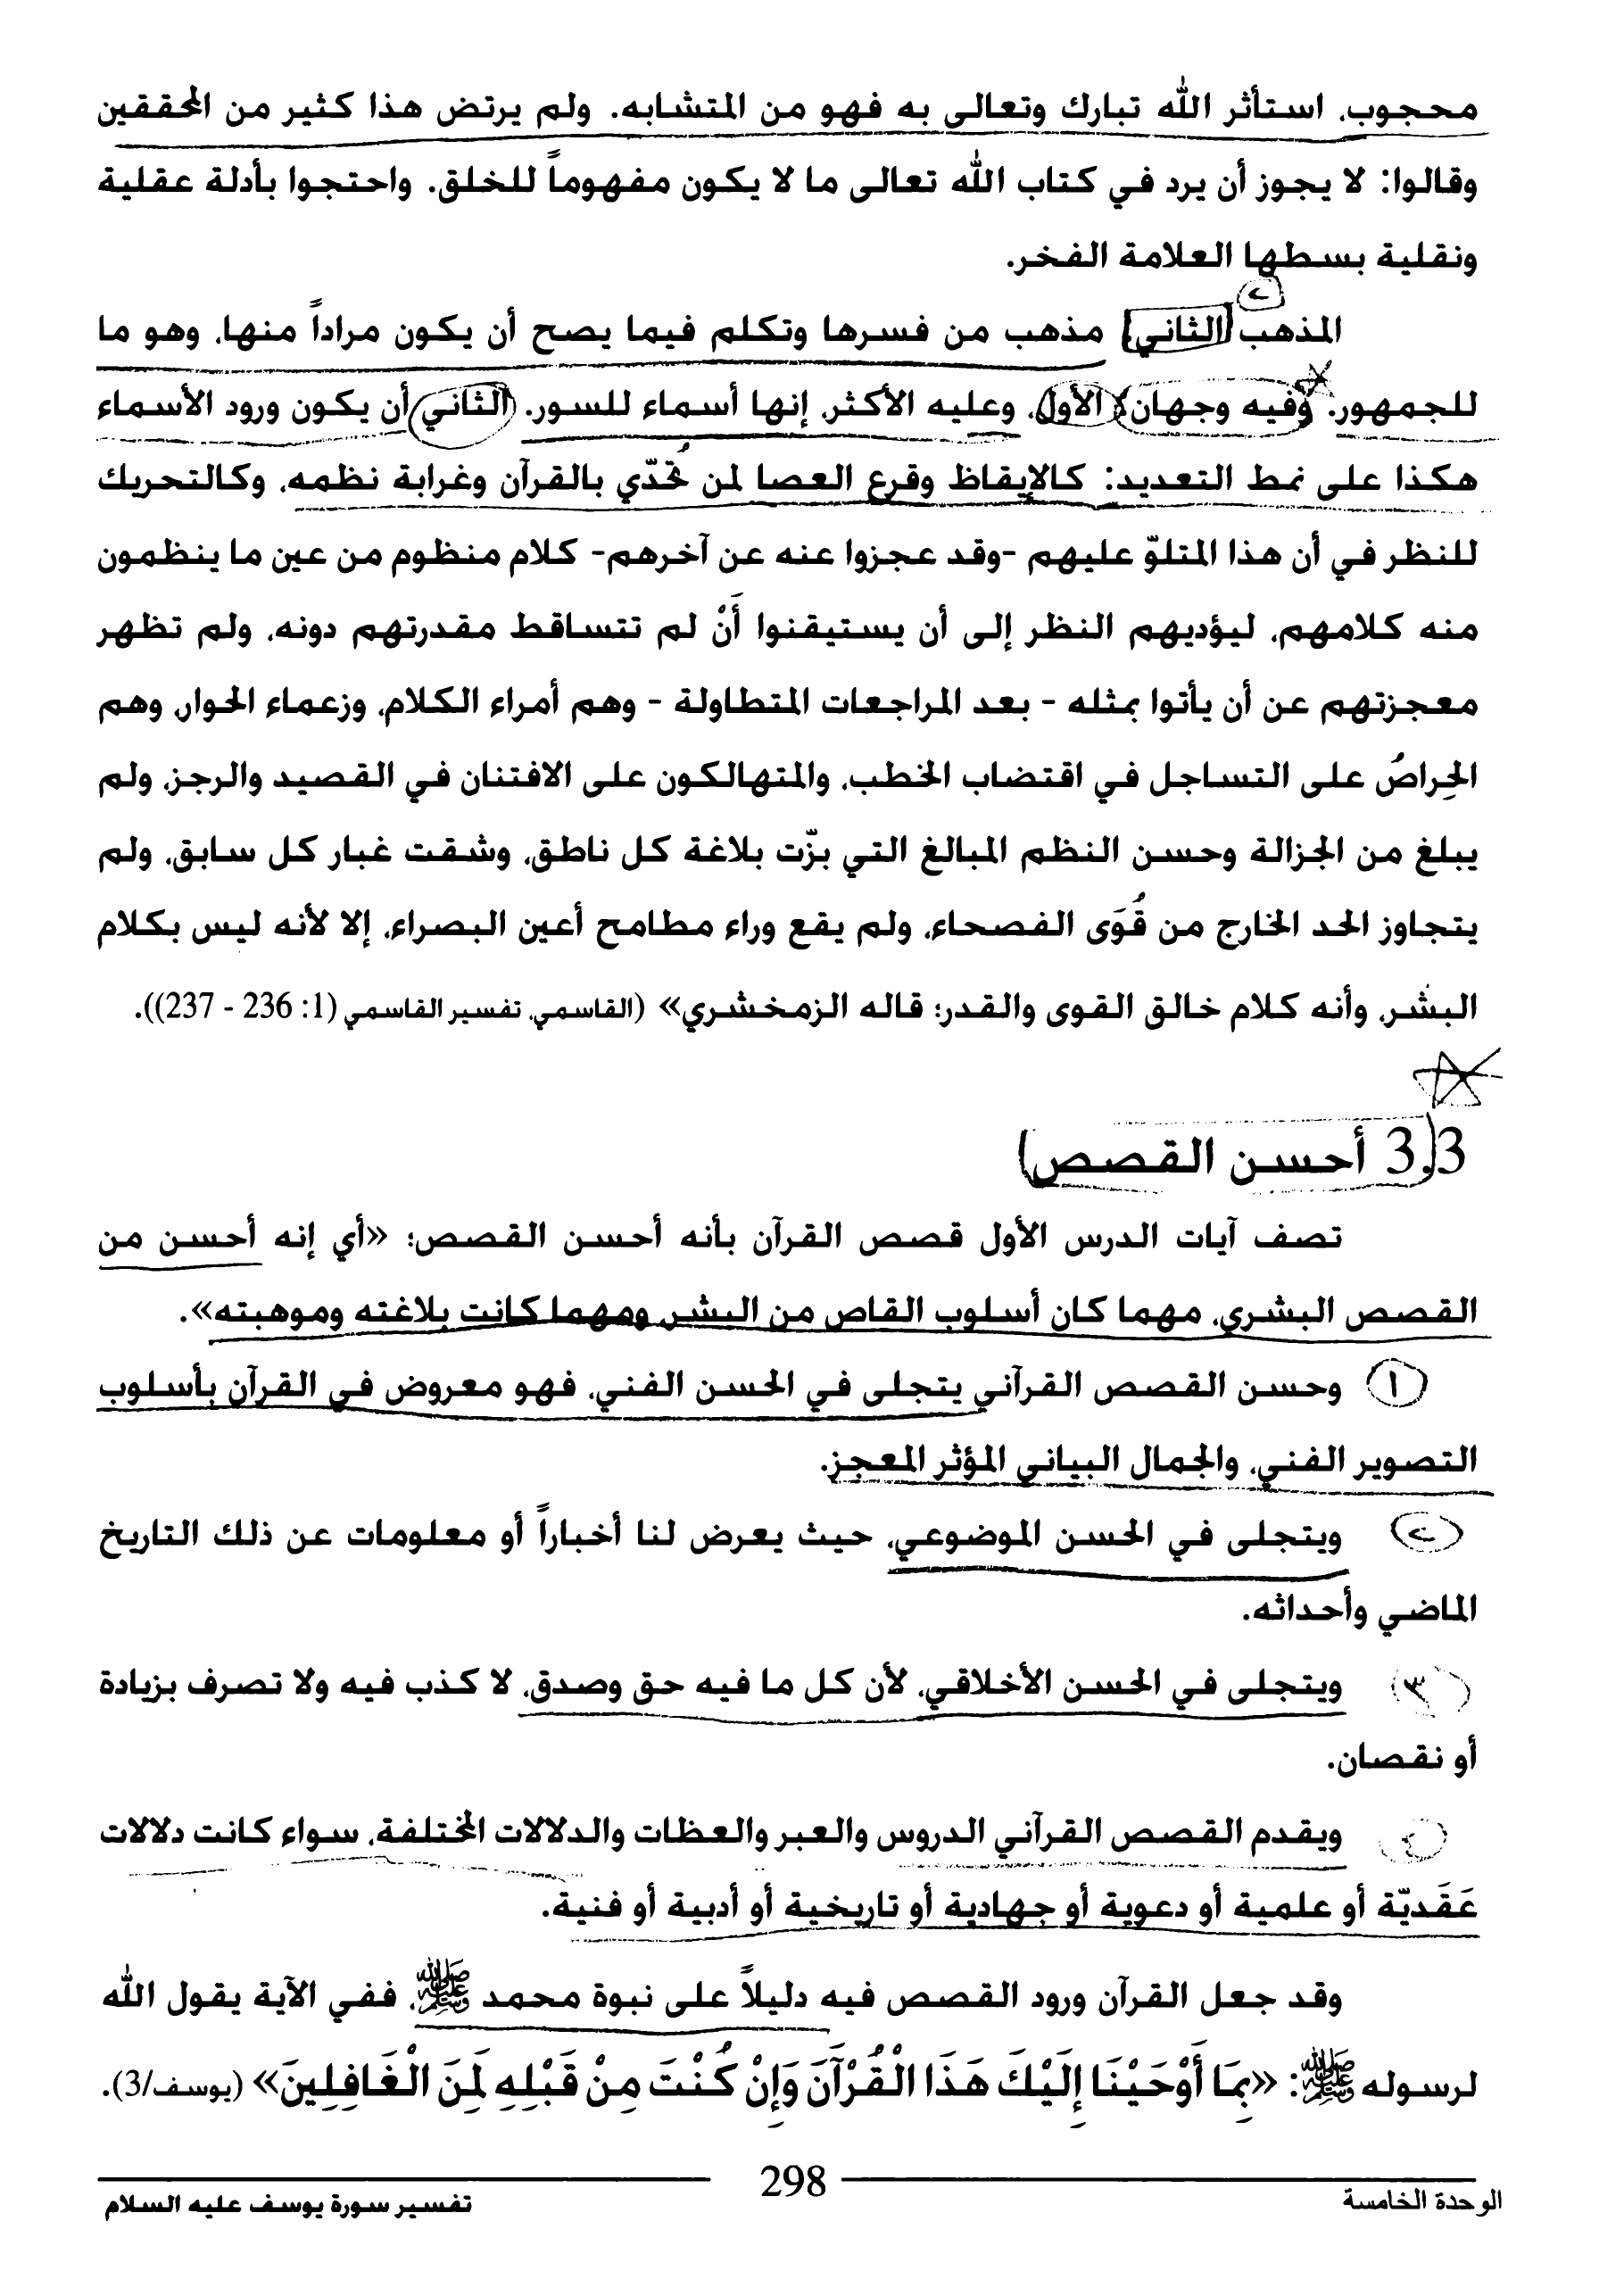 محجوب، استأثر الله تبارك وتعالى به فهو من المتشابه. ولم يرتض هذا كثير من المحققين
وقالوا: لا يجوز أن يرد في كتاب الله تعالى ما لا يكون مفهوماً للخلق. واحتجوا بأدلة عقلية
ونقلية بسطها العلامة الفخر.
٢
المذهب [الثاني] مذهب من فسرها وتكلم فيما يصح أن يكون مراداً منها، وهو ما
للجمهور. وفيه وجهان: الأول، وعليه الأكثر، إنها أسماء للسور. الثاني أن يكون ورود الأسماء
هكذا على نمط التعديد: كالإيقاظ وقرع العصا لمن تُحدّي بالقرآن وغرابة نظمه، وكالتحريك
للنظر في أن هذا المتلوّ عليهم -وقد عجزوا عنه عن آخرهم- كلام منظوم من عين ما ينظمون
منه كلامهم، ليؤديهم النظر إلى أن يستيقنوا أَنْ لم تتساقط مقدرتهم دونه، ولم تظهر
معجزتهم عن أن يأتوا بمثله - بعد المراجعات المتطاولة - وهم أمراء الكلام، وزعماء الحوار، وهم
الحِراصُ على التساجل في اقتضاب الخطب، والمتهالكون على الافتنان في القصيد والرجز، ولم
يبلغ من الجزالة وحسن النظم المبالغ التي بزّت بلاغة كل ناطق، وشقت غبار كل سابق، ولم
يتجاوز الحد الخارج من قُوَى الفصحاء، ولم يقع وراء مطامح أعين البصراء، إلا لأنه ليس بكلام
البشر، وأنه كلام خالق القوى والقدر؛ قاله الزمخشري» (القاسمي، تفسير القاسمي (1: 236 - 237)).
3.3 أحسن القصص
تصف آيات الدرس الأول قصص القرآن بأنه أحسن القصص؛ «أي إنه أحسن من
القصص البشري، مهما كان أسلوب القاص من البشر ومهما كانت بلاغته وموهبته».
١ وحسن القصص القرآني يتجلى في الحسن الفني، فهو معروض في القرآن بأسلوب
التصوير الفني، والجمال البياني المؤثر المعجز.
٢ ويتجلى في الحسن الموضوعي، حيث يعرض لنا أخباراً أو معلومات عن ذلك التاريخ
الماضي وأحداثه.
٣ ويتجلى في الحسن الأخلاقي، لأن كل ما فيه حق وصدق، لا كذب فيه ولا تصرف بزيادة
أو نقصان.
٤ ويقدم القصص القرآني الدروس والعبر والعظات والدلالات المختلفة، سواء كانت دلالات
عَقَديّة أو علمية أو دعوية أو جهادية أو تاريخية أو أدبية أو فنية.
وقد جعل القرآن ورود القصص فيه دليلاً على نبوة محمد ﷺ، ففي الآية يقول الله
لرسوله ﷺ: «بِمَا أَوْحَيْنَا إِلَيْكَ هَذَا الْقُرْآَنَ وَإِنْ كُنْتَ مِنْ قَبْلِهِ لَمِنَ الْغَافِلِينَ» (يوسف/3).
298
الوحدة الخامسة
تفسير سورة يوسف عليه السلام